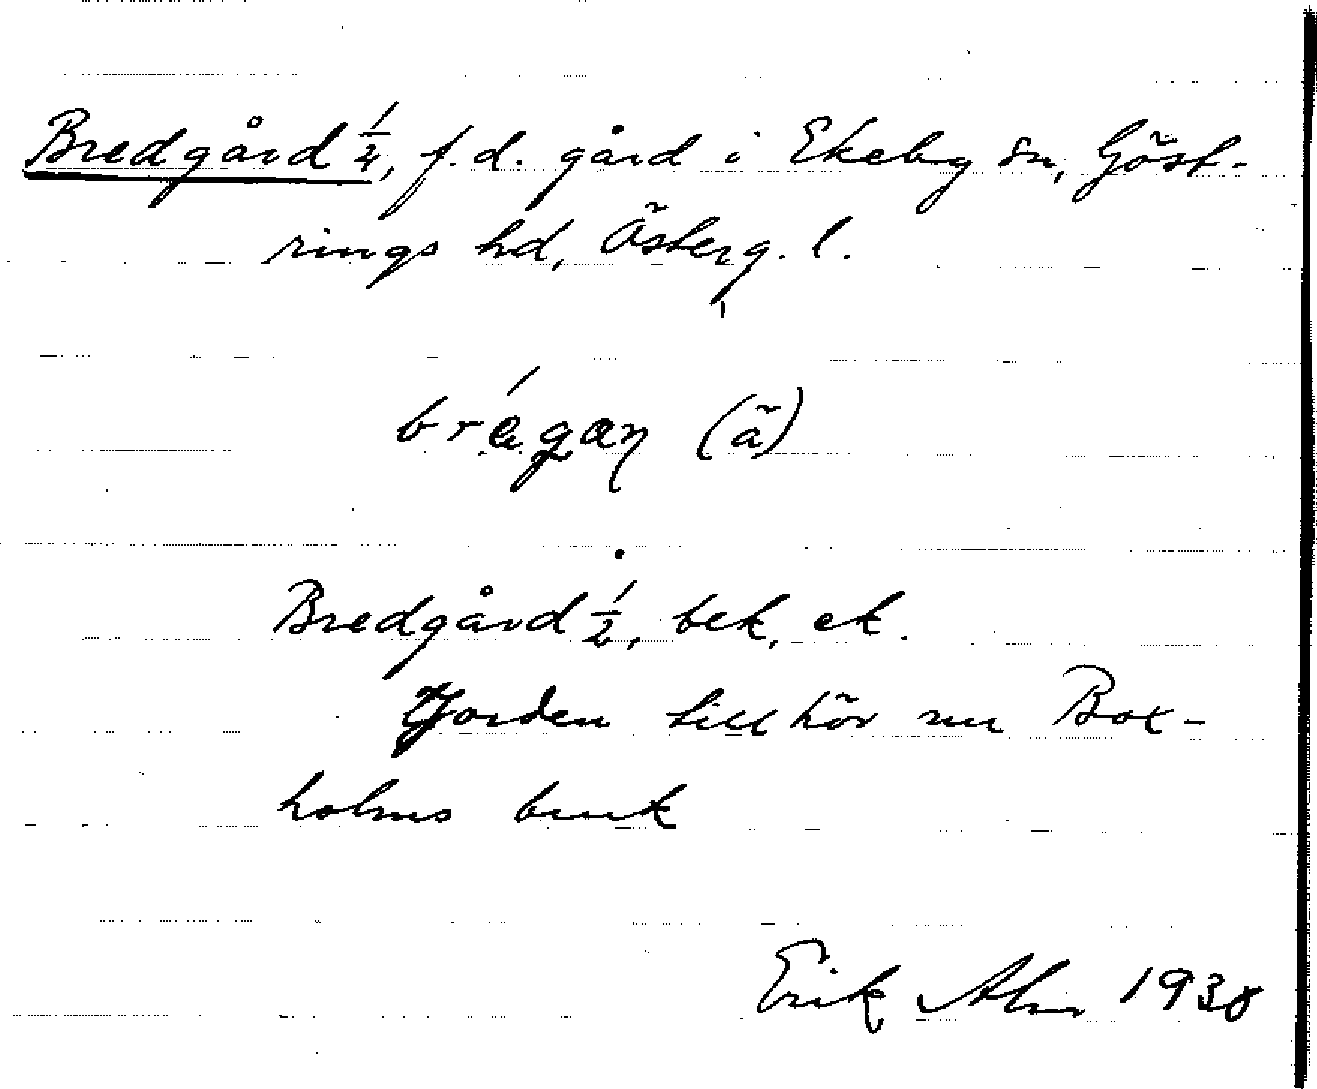 Bredgård 1/4, f.d. gård i Ekeby sn, Göst-
rings hd, Österg. l.
brégan (ã)
Bredgård 1/2, bek, ek.
Jorden tillhör nu Box-
holms bruk
Erik Alm 1938